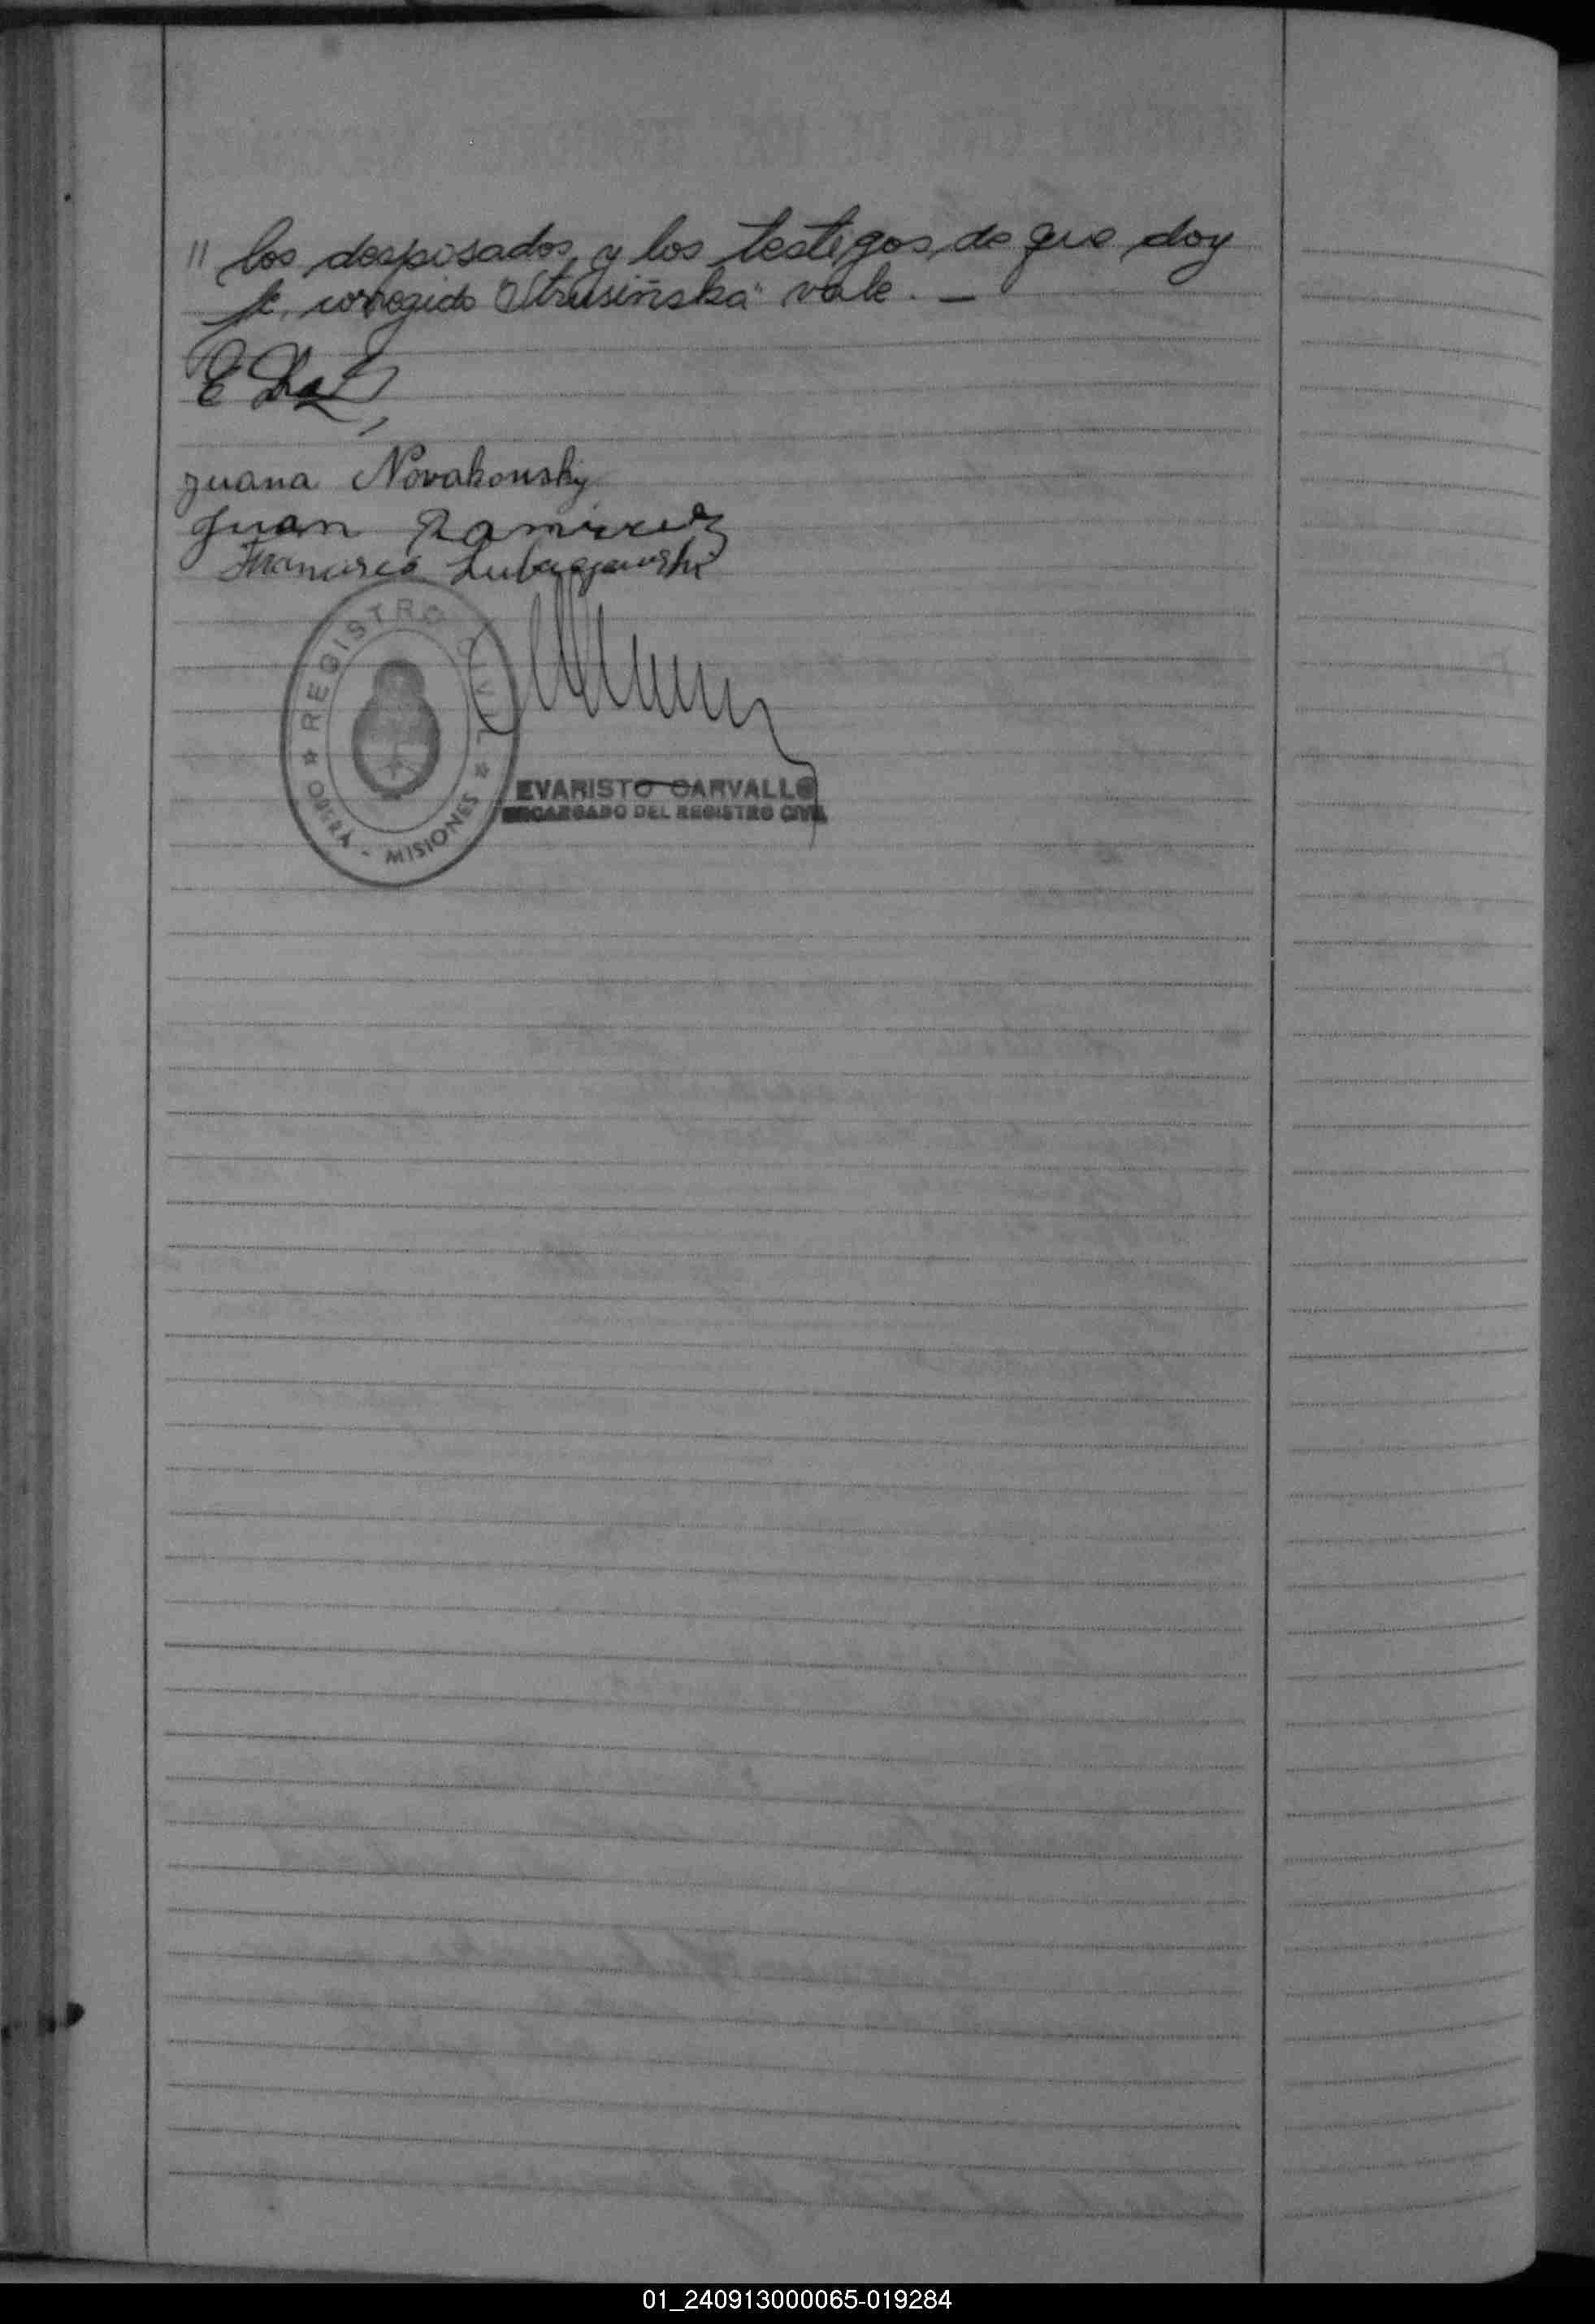 " los desposados, y los testigos, de que doy
fe, corregido "Strusiñska" vale. —
E Díaz
Juana Novakonsky
Juan Ramirez
Francisco
REGISTRO CIVIL
OBERÁ - MISIONES
EVARISTO CARVALLO
ENCARGADO DEL REGISTRO CIVIL
01_240913000065-019284